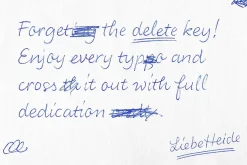 Forgeting the delete key!
Enjoy every typpo and
cross th it out with full
dedication.
LiebeHeide